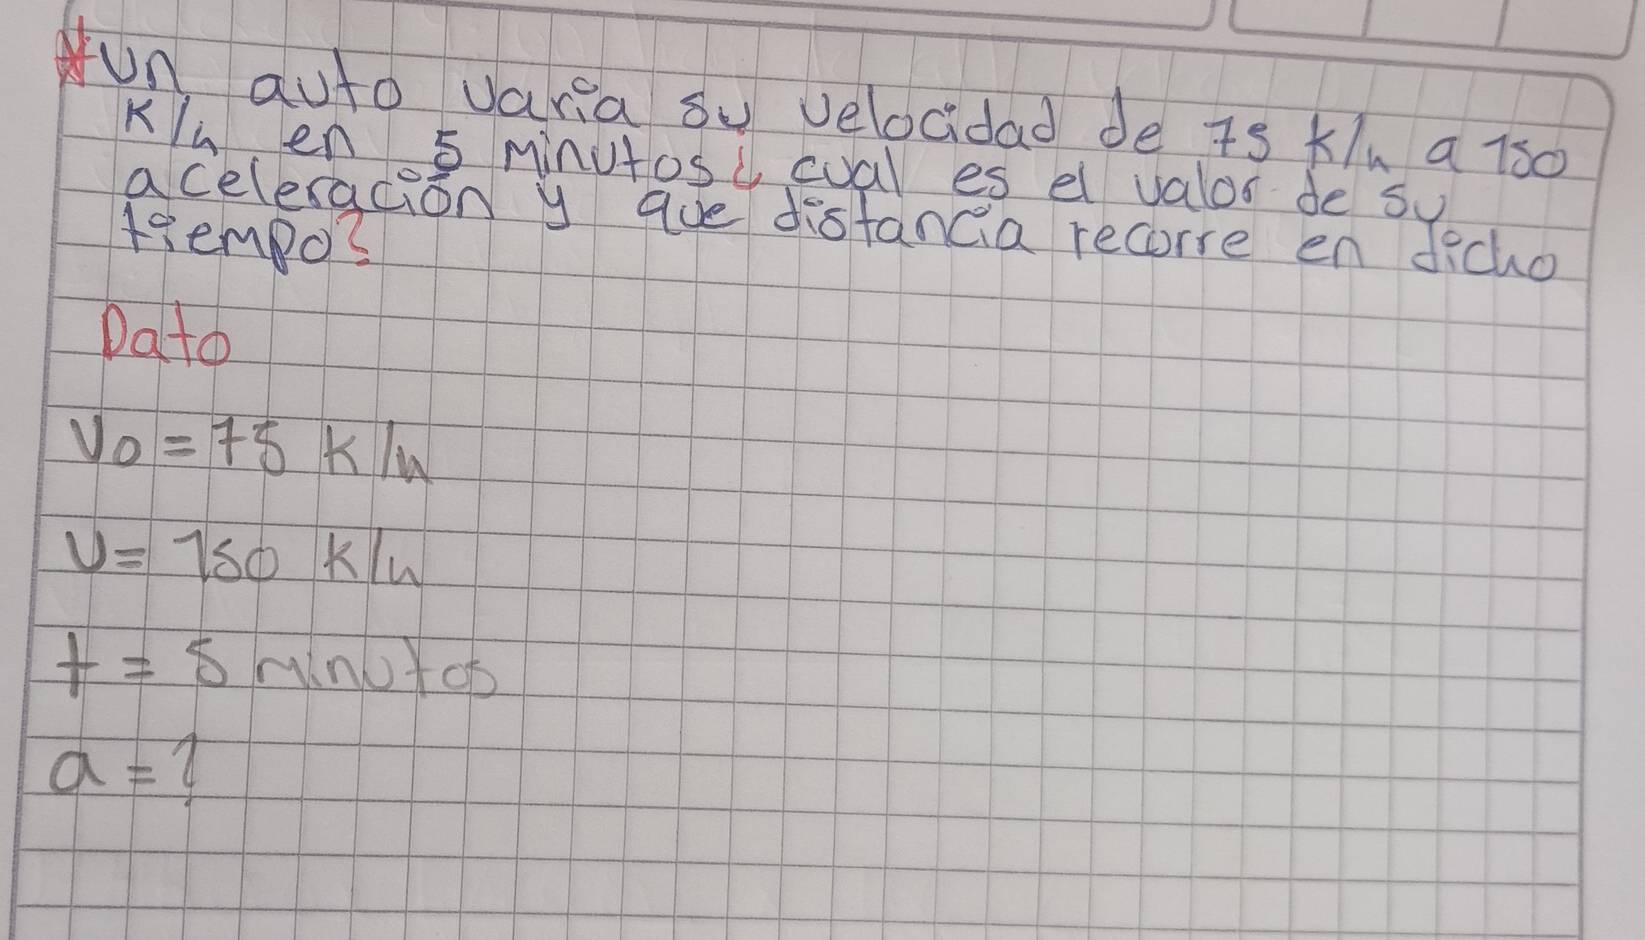 *Un auto varia su velocidad de 75 K/h a 150
K/h en 5 minutos¿ cual es el valor de su
aceleración y que distancia recorre en dicho
tiempo?
Dato
Vo = 75 K/h
V = 150 K/h
t = 5 minutos
a = ?